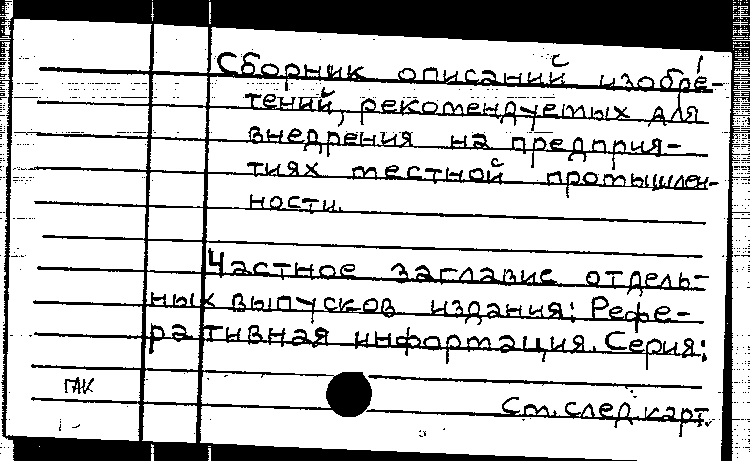 Сборник описаний изобре-
тений, рекомендуемых для
внедрения на предприя-
тиях местной промышлен-
ности.
Частное заглавие отдель-
ных выпусков издания: Рефе-
ративная информация. Серия:
ГАК
См. след. карт.